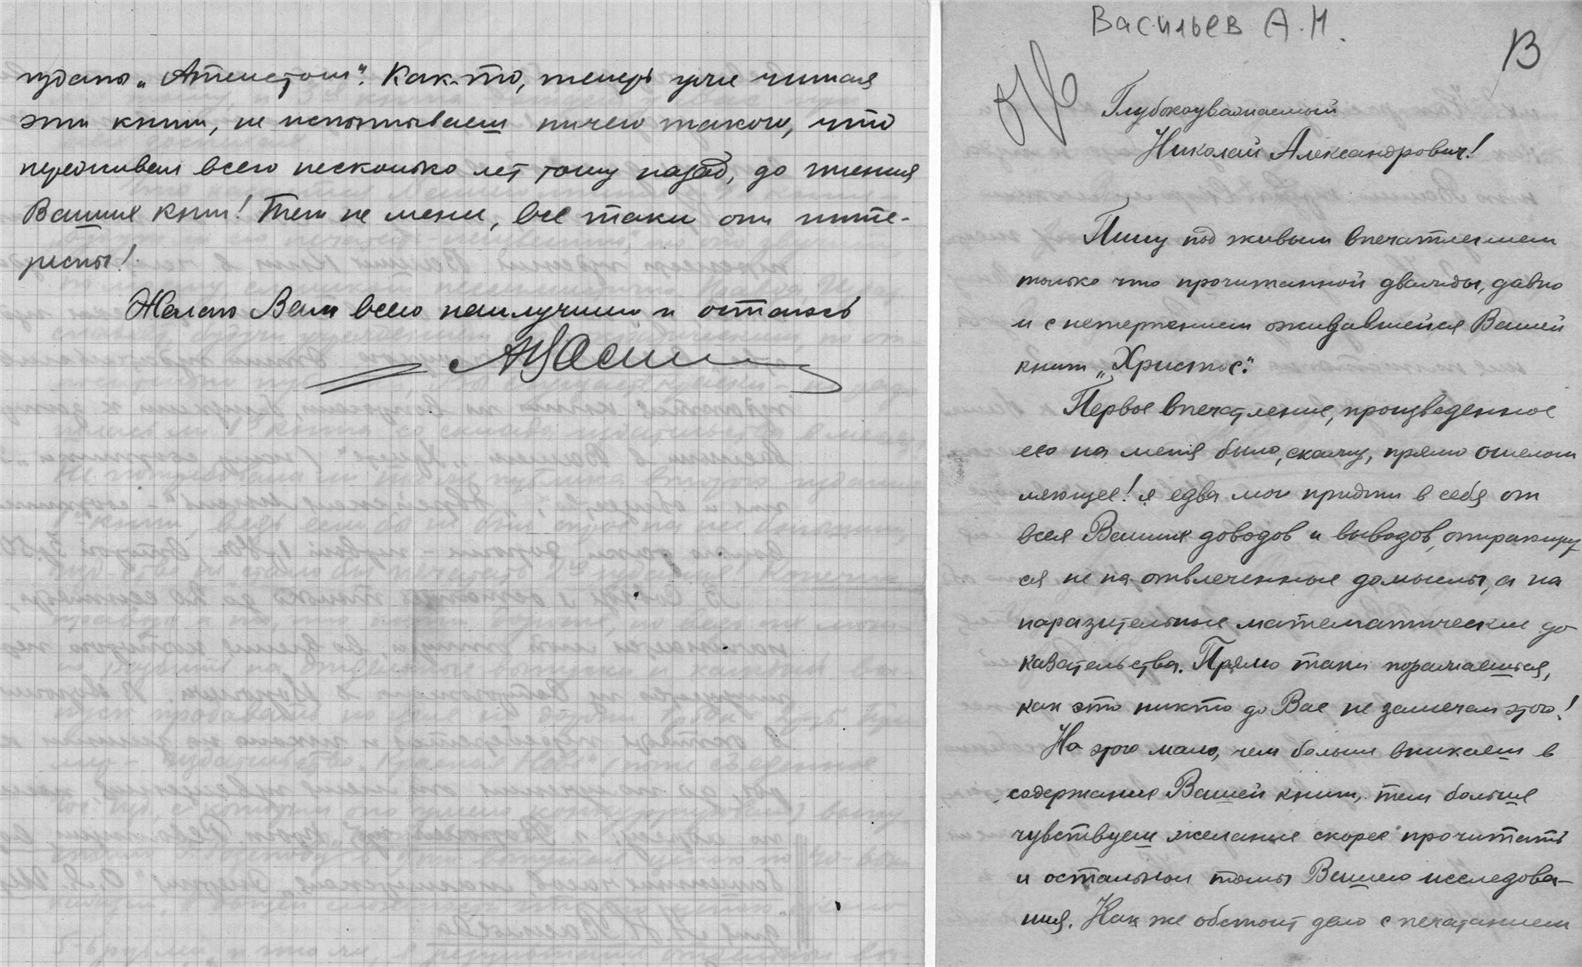 изданы „Атеистом". Как-то, теперь уже читая
эти книги, не испытываешь ничего такого, что
переживал всего несколько лет тому назад, до чтения
Ваших книг! Тем не менее, все таки они инте-
ресны!
Желаю Вам всего наилучшего и остаюсь
Васильев А.Н.
В
Глубокоуважаемый
Николай Александрович!
Пишу под живым впечатлением
только что прочитанной дважды, давно
и с нетерпением ожидавшейся Вашей
книги „Христос".
Первое впечатление, произведенное
ею на меня было, скажу, прямо ошелом
ляющее! Я едва мог придти в себя от
всех Ваших доводов и выводов, опирающих
ся не на отвлеченные домыслы, а на
поразительные математические до
казательства. Прямо таки поражаешься,
как это никто до Вас не замечал этого!
Но этого мало, чем больше вникаешь в
содержание Вашей книги, тем больше
чувствуешь желание скорее прочитать
и остальные томы Вашего исследова-
ния. Как же обстоит дело с печатанием